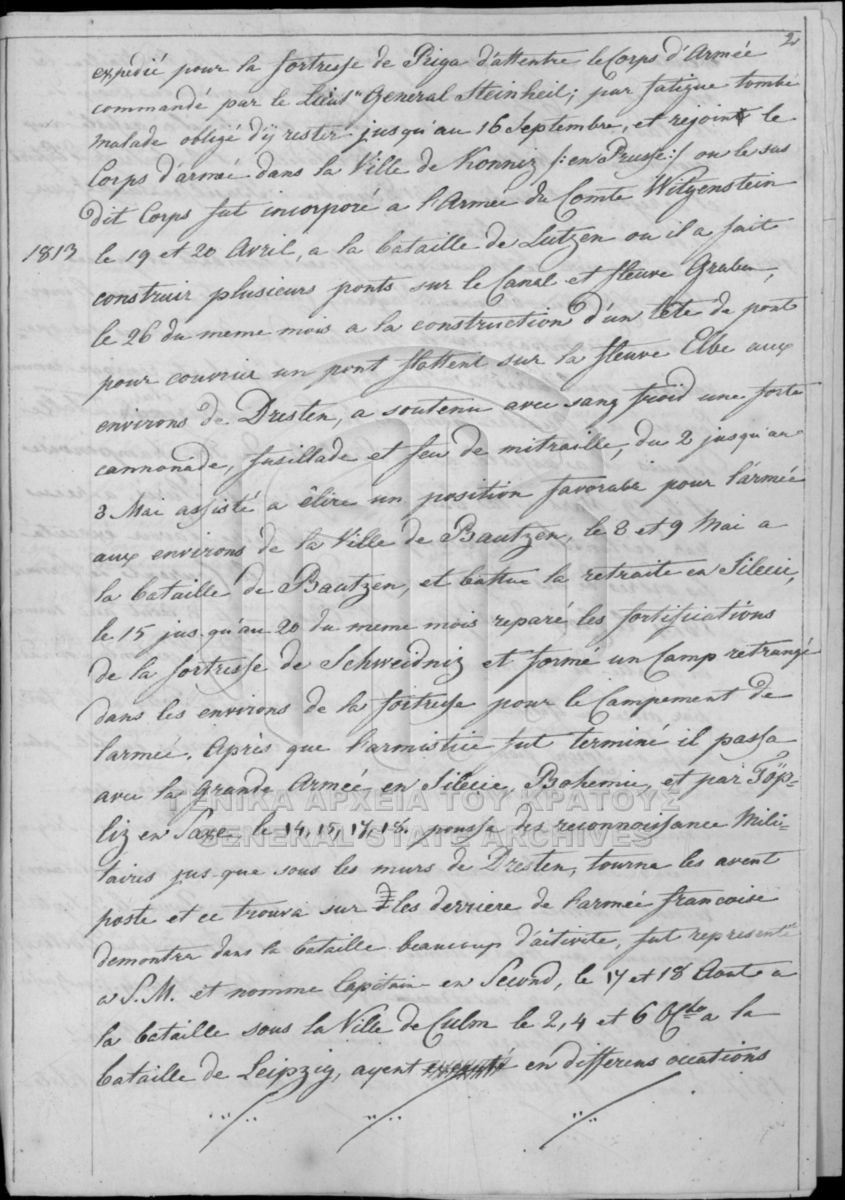 2
expédié pour la fortresse de Riga d'attentre le Corps d'Armée
commandé par le Lieut.n General Steinheil; par fatigue tombé
malade obligé d'ÿ rester jusqu'au 16 Septembre, et rejoint le
Corps d'armé dans la Ville de Konniz /: en Prusse :/ ou le sus
dit Corps fut incorporé a l'Armée du Comte Witgenstein
1813 le 19 et 20 Avril, a la bataille de Lutzen ou il a fait
construir plusieurs ponts sur le Canal et fleuve Graba,
le 26 du meme mois a la construction d'un tête de pont
pour couvrir un pont flattent sur la fleuve Elbe aux
environs de Dresten, a soutenu avec sang froid une forte
cannonade, fusillade et feu de mitraille, du 2 jusqu'au
8 Mai assisté a êlire un position favorabe pour l'armée
aux environs de la Ville de Bautzen, le 8 et 9 Mai a
la bataille de Bautzen, et battue la retraite en Silecie,
le 15 jus.qu'au 20 du meme mois reparé les fortifications
de la fortresse de Schweidniz et formé un Camp retrangé
dans les environs de la fortresse pour le Campement de
l'armée. Après que l'armistice fut terminé il passa
avec la grande Armée en Silecie, Bohemie, et par Töp-
liz en Saxe le 14, 15, 17, 18. poussa des reconnoissance Mili-
taires jus que sous les murs de Dresten, tourna les avent
poste et ce trouva sur les derriere de l'armée francoise
demontra dans la bataille beaucoup d'activite, fut representé
a S.M. et nomme Capitain en Second, le 17 et 18 Aout a
la bataille sous la Ville de Culm le 2, 4 et 6 Octo a la
bataille de Leipzig, ayent en differens ocations
ΓΕΝΙΚΑ ΑΡΧΕΙΑ ΤΟΥ ΚΡΑΤΟΥΣ
GENERAL STATE ARCHIVES